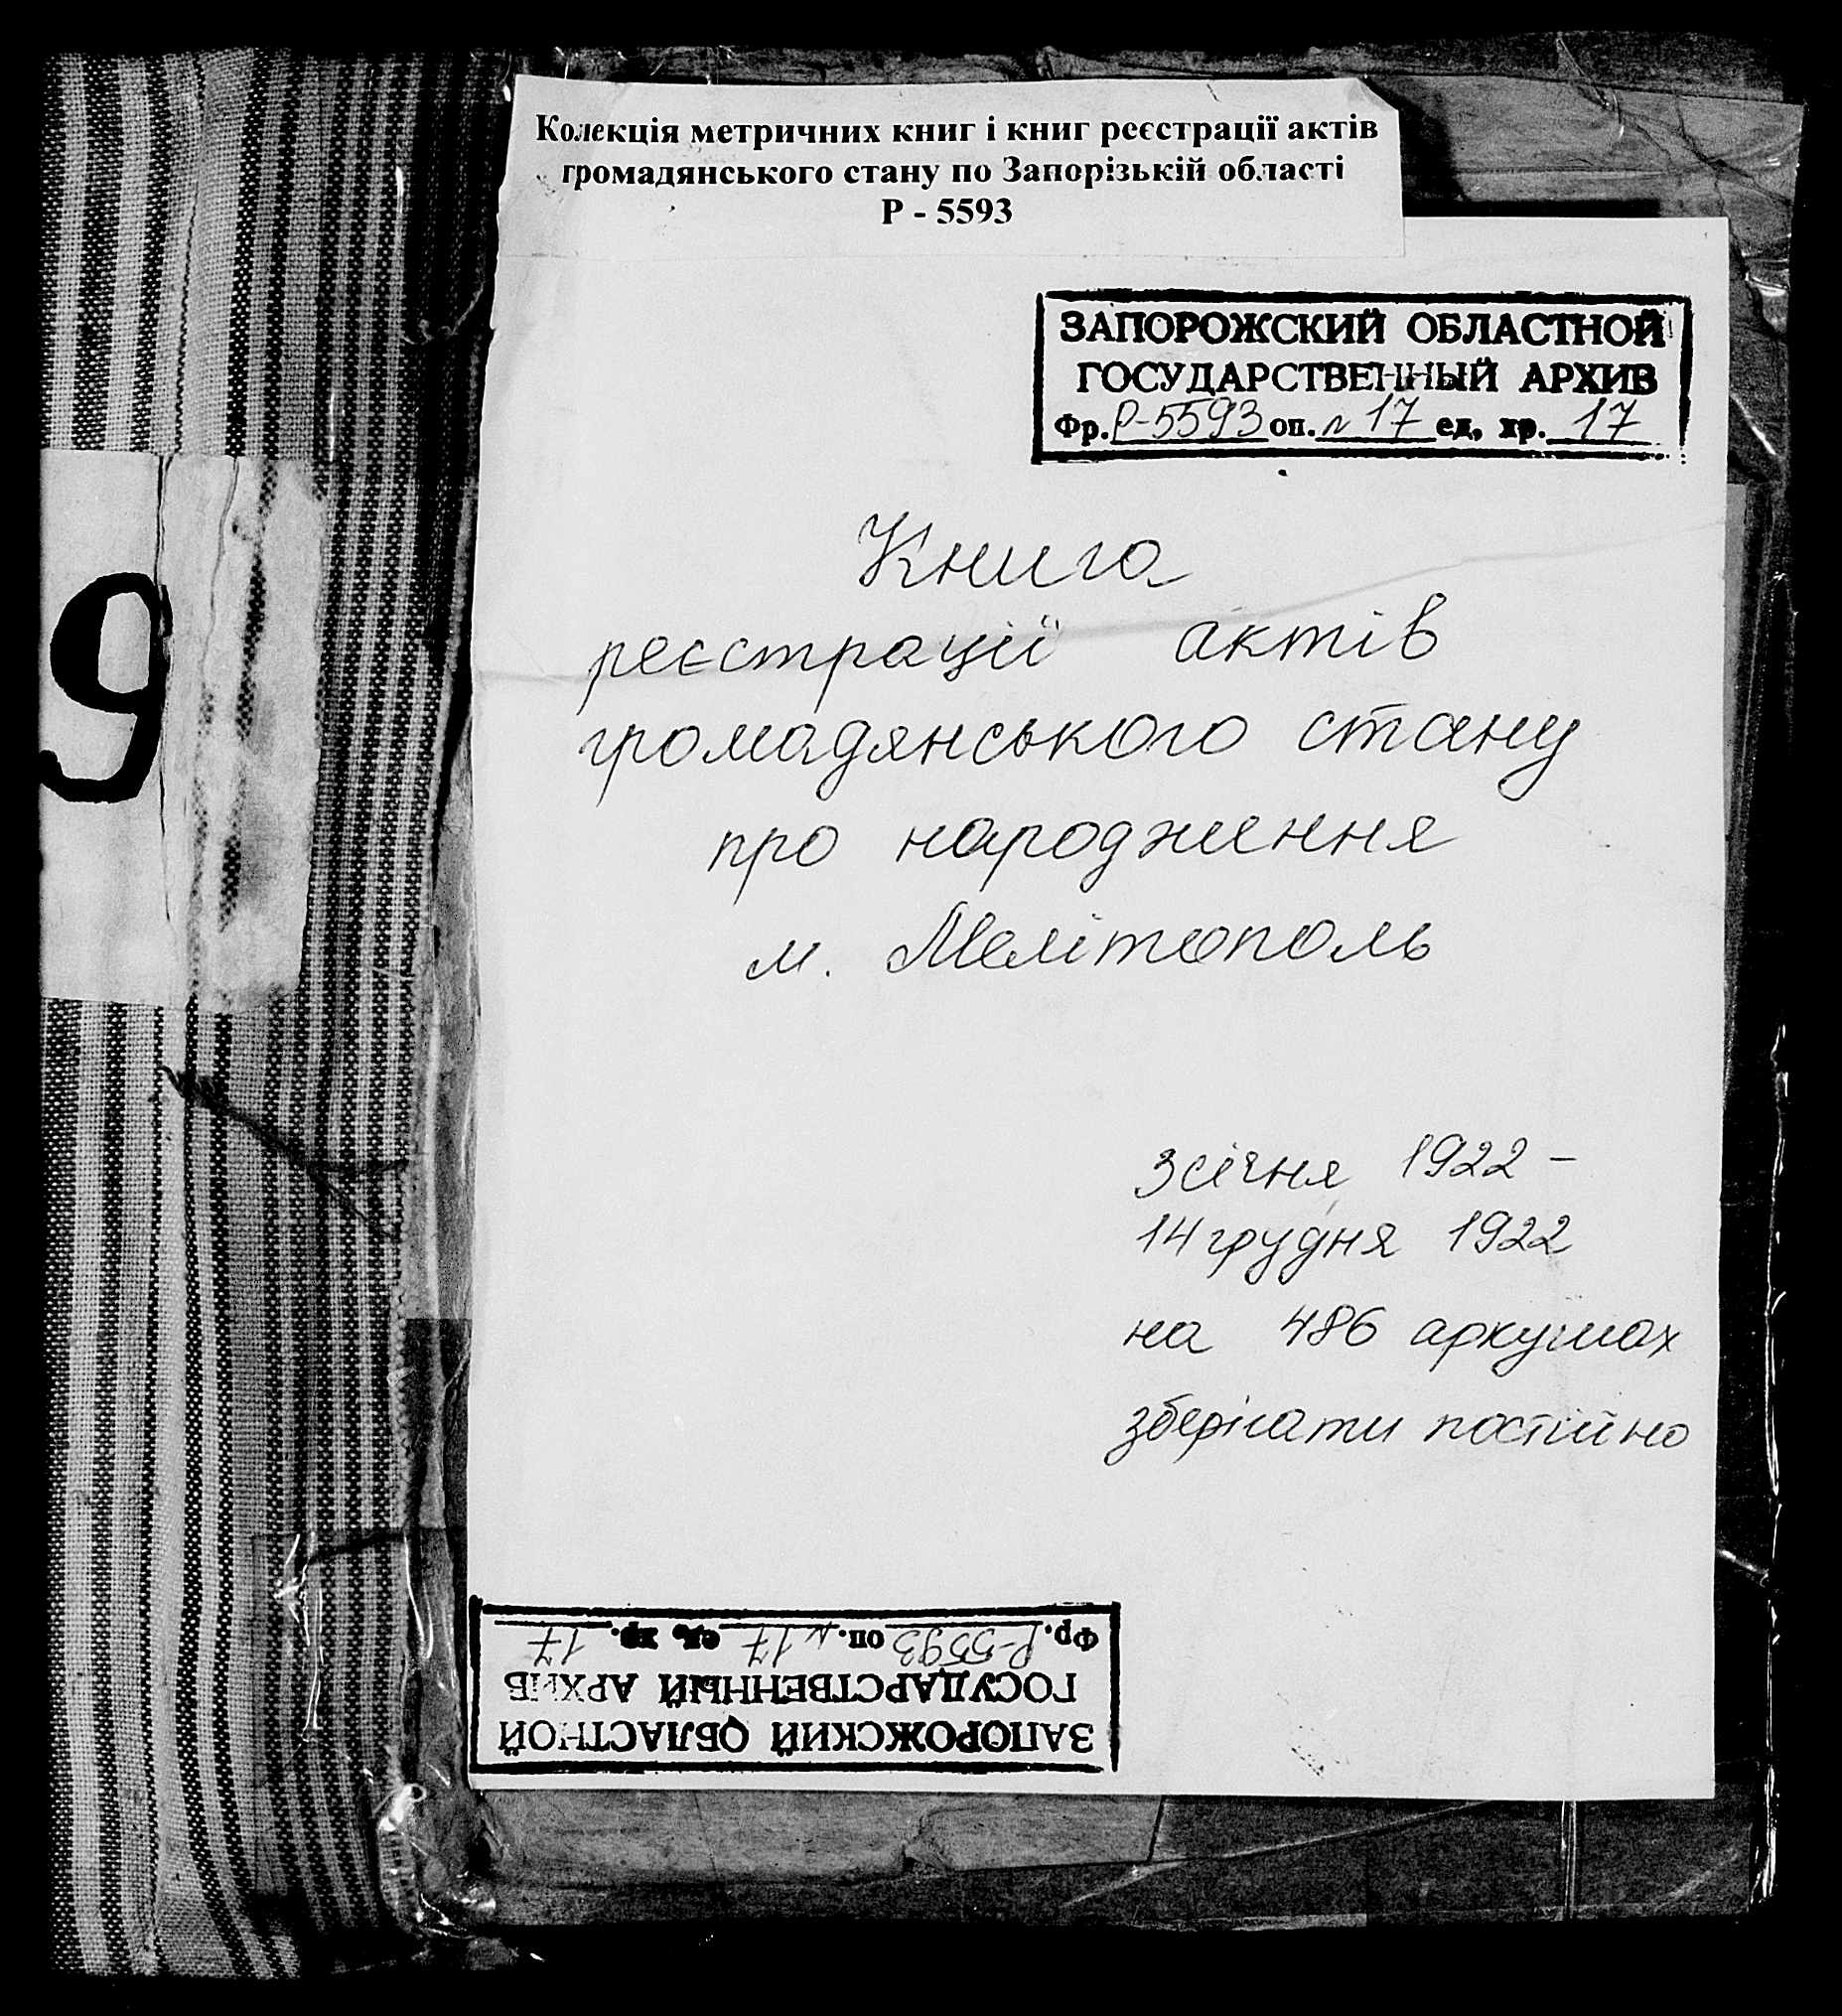 Колекція метричних книг і книг реєстрації актів
громадянського стану по Запорізькій області
Р - 5593
ЗАПОРОЖСКИЙ ОБЛАСТНОЙ
ГОСУДАРСТВЕННЫЙ АРХИВ
Фр. Р-5593 оп. л 17 ед. хр. 17
Книга
реєстрації актів
громадянського стану
про народження
м. Мелітополь
9
3 січня 1922 –
14 грудня 1922
на 486 аркушах
зберігати постійно
ЗАПОРОЖСКИЙ ОБЛАСТНОЙ
ГОСУДАРСТВЕННЫЙ АРХИВ
Фр. Р-5593 оп. л 17 ед. хр. 17